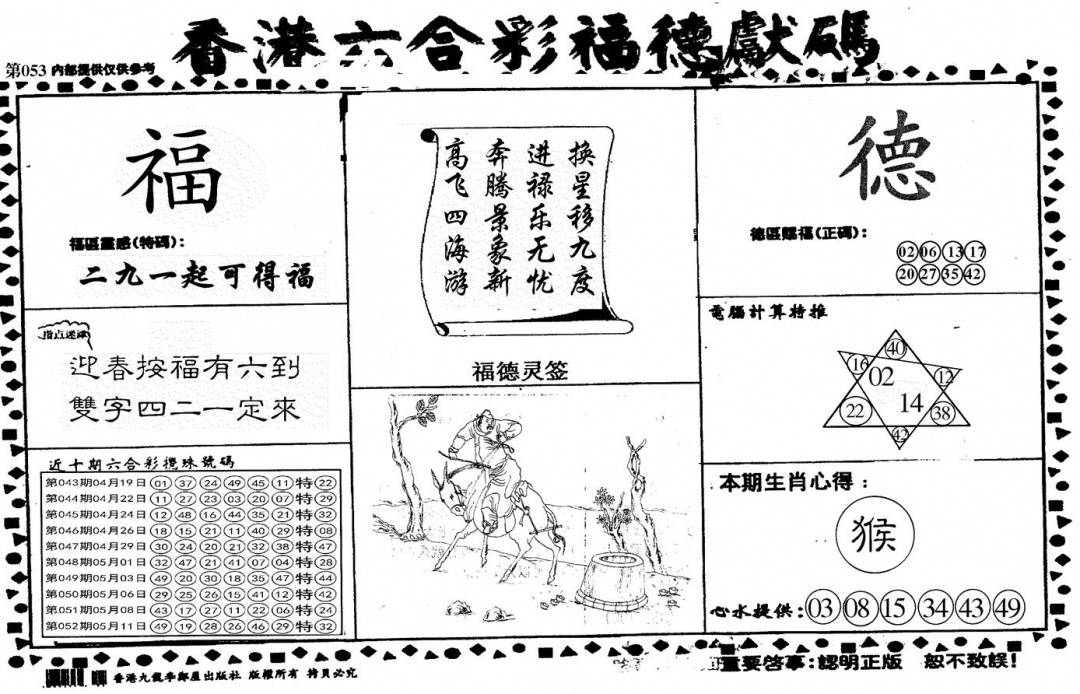 香港六合彩福德獻碼
第053 内部提供仅供参考
福
福區靈感(特碼):
二九一起可得福
指点迷津
迎春按福有六到
雙字四二一定來
近十期六合彩攪珠號碼
第043期04月19日 01 37 24 49 45 11 特 22
第044期04月22日 11 27 23 03 20 07 特 29
第045期04月24日 12 48 16 44 35 21 特 32
第046期04月26日 18 15 21 11 40 29 特 08
第047期04月29日 30 24 20 21 32 38 特 47
第048期05月01日 32 47 21 41 07 04 特 28
第049期05月03日 49 20 30 18 35 47 特 44
第050期05月06日 29 25 26 15 41 12 特 42
第051期05月08日 43 17 27 11 22 06 特 24
第052期05月11日 49 19 28 26 46 29 特 32
换星移九度
进禄乐无忧
奔腾景象新
高飞四海游
福德灵签
德
德區賜福(正碼):
02 06 13 17
20 27 35 42
電腦計算特推
40
16 02 12
22 14 38
42
本期生肖心得:
猴
心水提供: 03 08 15 34 43 49
香港九龍李鄭屋出版社 版權所有 拷貝必究
重要啓事:認明正版 恕不致誤!